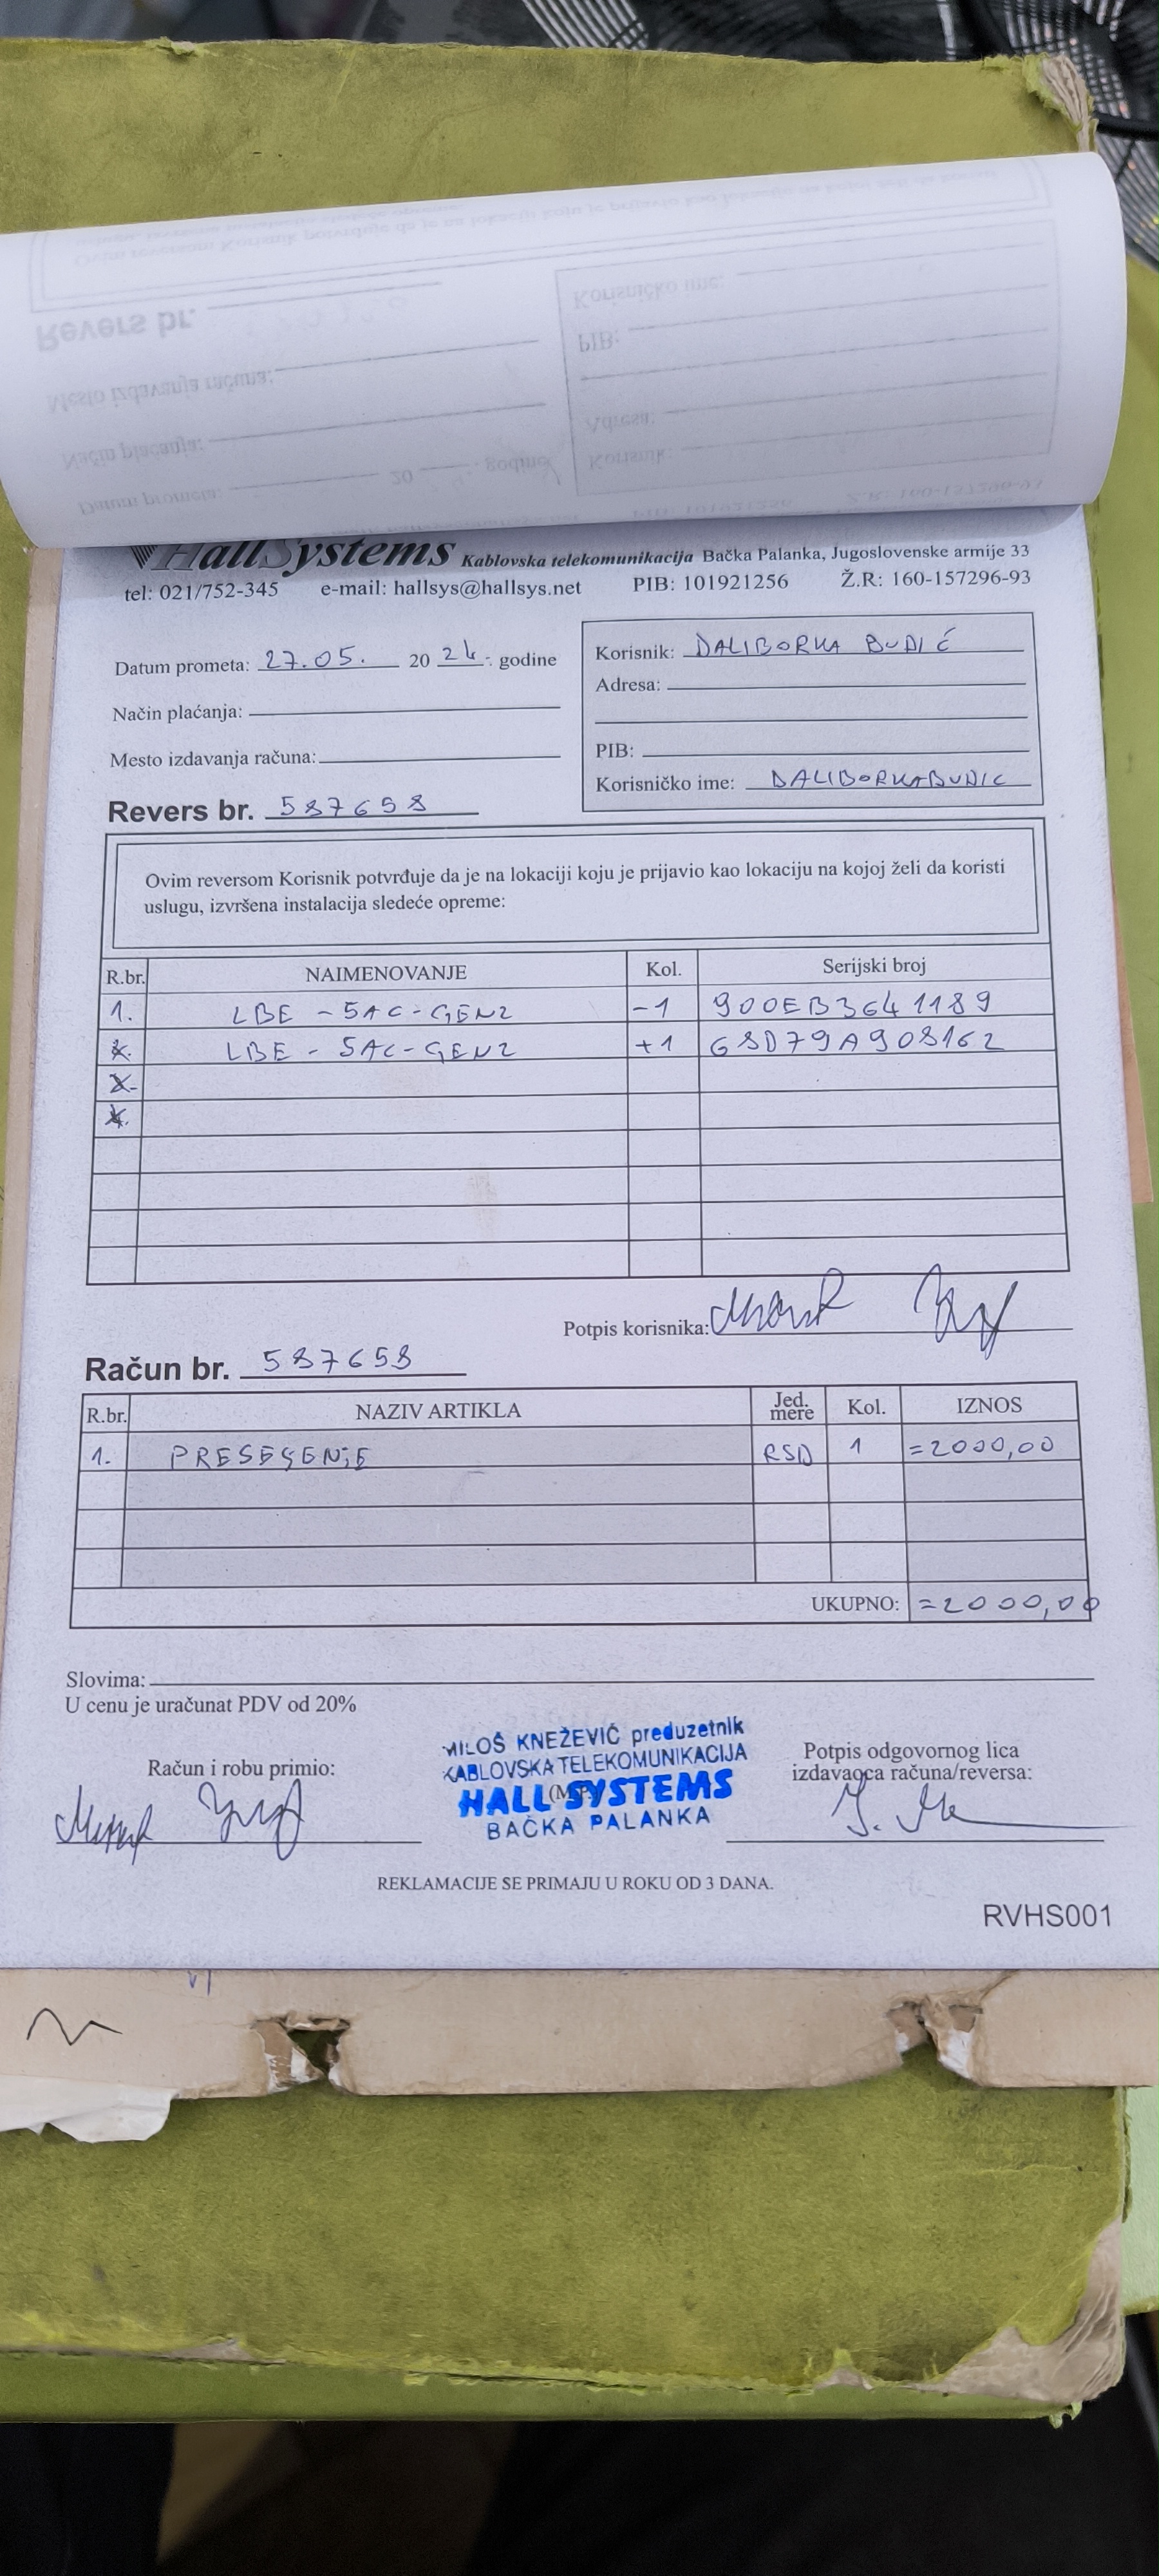 HallSystems Kablovska telekomunikacija Bačka Palanka, Jugoslovenske armije 33
tel: 021/752-345 e-mail: hallsys@hallsys.net PIB: 101921256 Ž.R: 160-157296-93
Datum prometa: 27.05. 20 24. godine
Način plaćanja:
Mesto izdavanja računa:
Revers br. 587658
Korisnik: DALIBORKA BUDIĆ
Adresa:
PIB:
Korisničko ime: DALIBORKABUDIC
Ovim reversom Korisnik potvrđuje da je na lokaciji koju je prijavio kao lokaciju na kojoj želi da koristi
uslugu, izvršena instalacija sledeće opreme:
R.br. NAIMENOVANJE Kol. Serijski broj
1. LBE - 5AC-GEN2 -1 900EB3641189
LBE - 5AC-GEN2 +1 68D79A908162
Potpis korisnika:
Račun br. 587658
R.br. NAZIV ARTIKLA Jed. mere Kol. IZNOS
1. PRESEŞENjE RSD 1 =2000,00
UKUPNO: =2000,00
Slovima:
U cenu je uračunat PDV od 20%
Račun i robu primio:
MILOŠ KNEŽEVIĆ preduzetnik
KABLOVSKA TELEKOMUNIKACIJA
HALL SYSTEMS
BAČKA PALANKA
Potpis odgovornog lica
izdavaoca računa/reversa:
REKLAMACIJE SE PRIMAJU U ROKU OD 3 DANA.
RVHS001